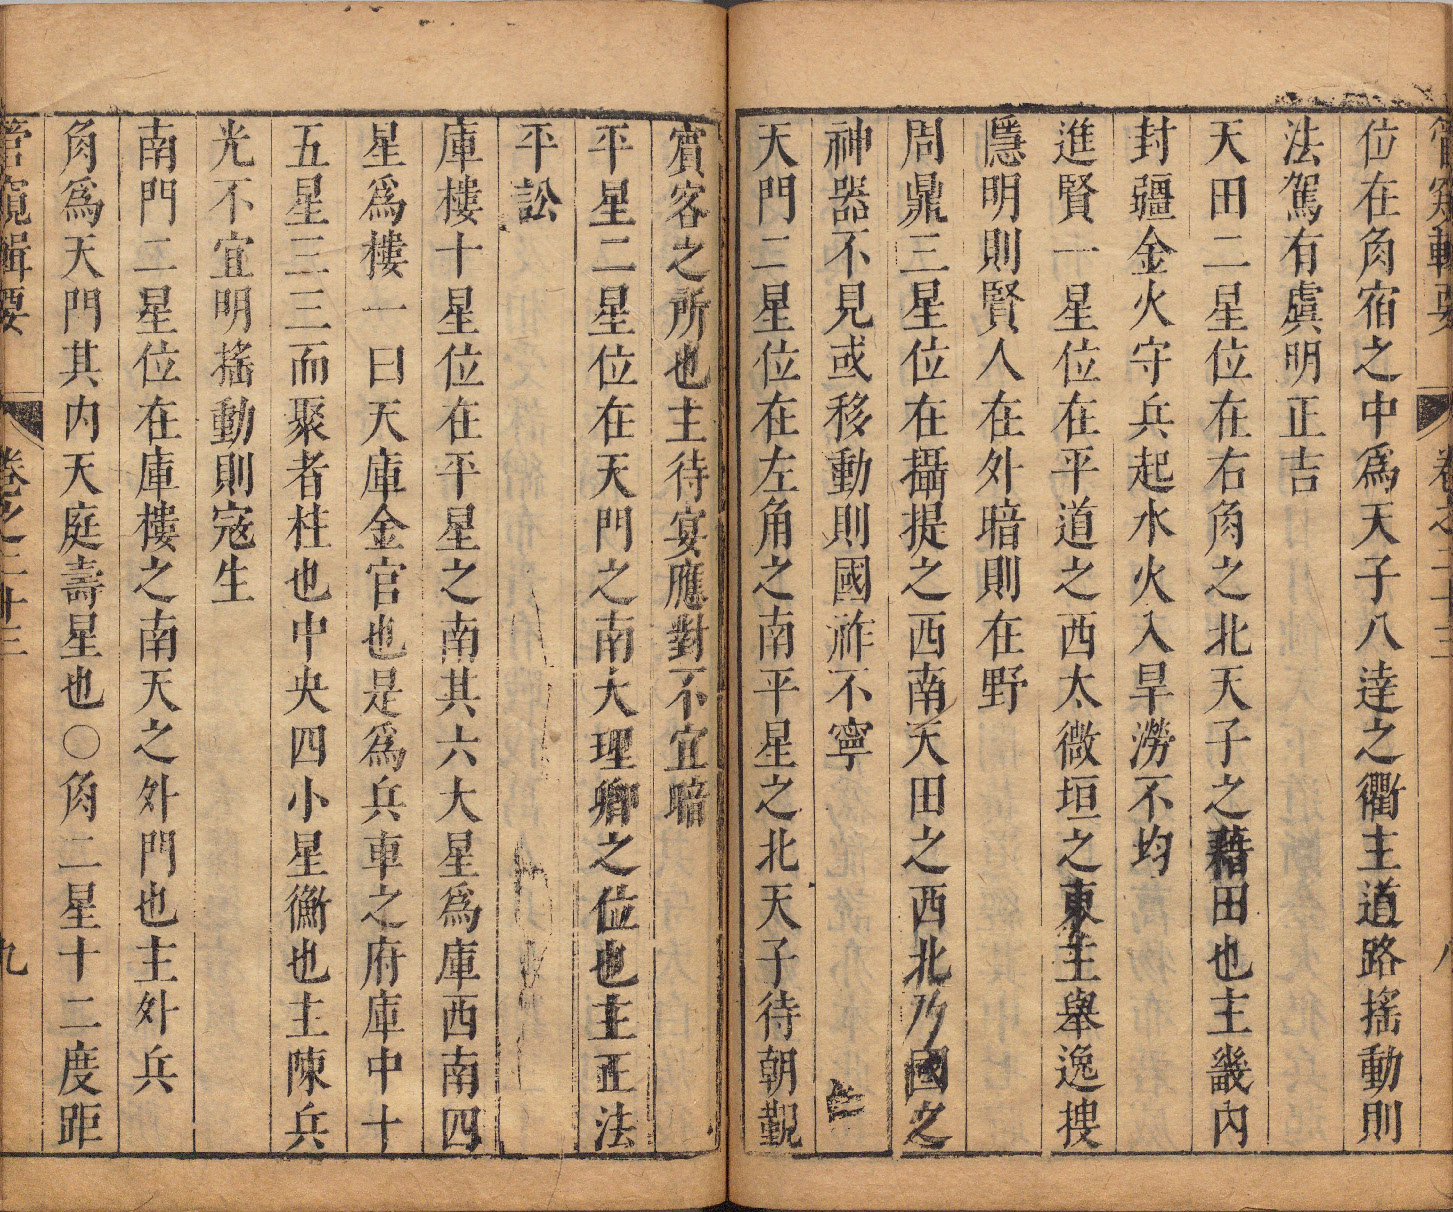 管窺輯要 卷之二十三 八
位在角宿之中爲天子八逵之衢主道路搖動則
法駕有虞明正吉
天田二星位在右角之北天子之藉田也主畿內
封疆金火守兵起水火入旱澇不均
進賢一星位在平道之西太微垣之東主舉逸搜
隱明則賢人在外暗則在野
周鼎三星位在攝提之西南天田之西北乃國之
神器不見或移動則國祚不寧
天門二星位在左角之南平星之北天子待朝覲
賓客之所也主待宴應對不宜暗
平星二星位在天門之南大理卿之位也主正法
平訟
庫樓十星位在平星之南其六大星爲庫西南四
星爲樓一曰天庫金官也是爲兵車之府庫中十
五星三三而聚者柱也中央四小星衡也主陳兵
光不宜明搖動則寇生
南門二星位在庫樓之南天之外門也主外兵
角爲天門其內天庭壽星也○角二星十二度距
管窺輯要 卷之二十三 九